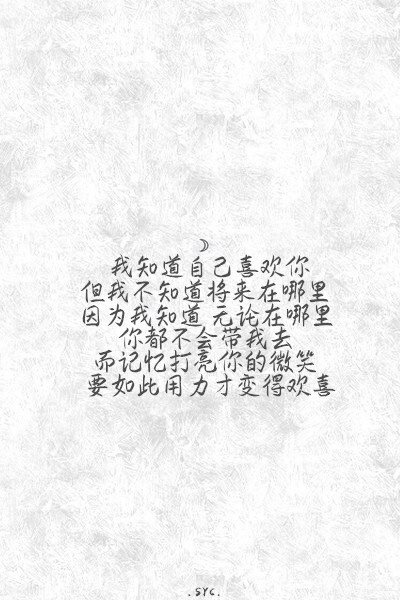 我知道自己喜欢你
但我不知道将来在哪里
因为我知道 无论在哪里
你都不会带我去
而记忆打亮你的微笑
要如此用力才变得欢喜
. SYC.